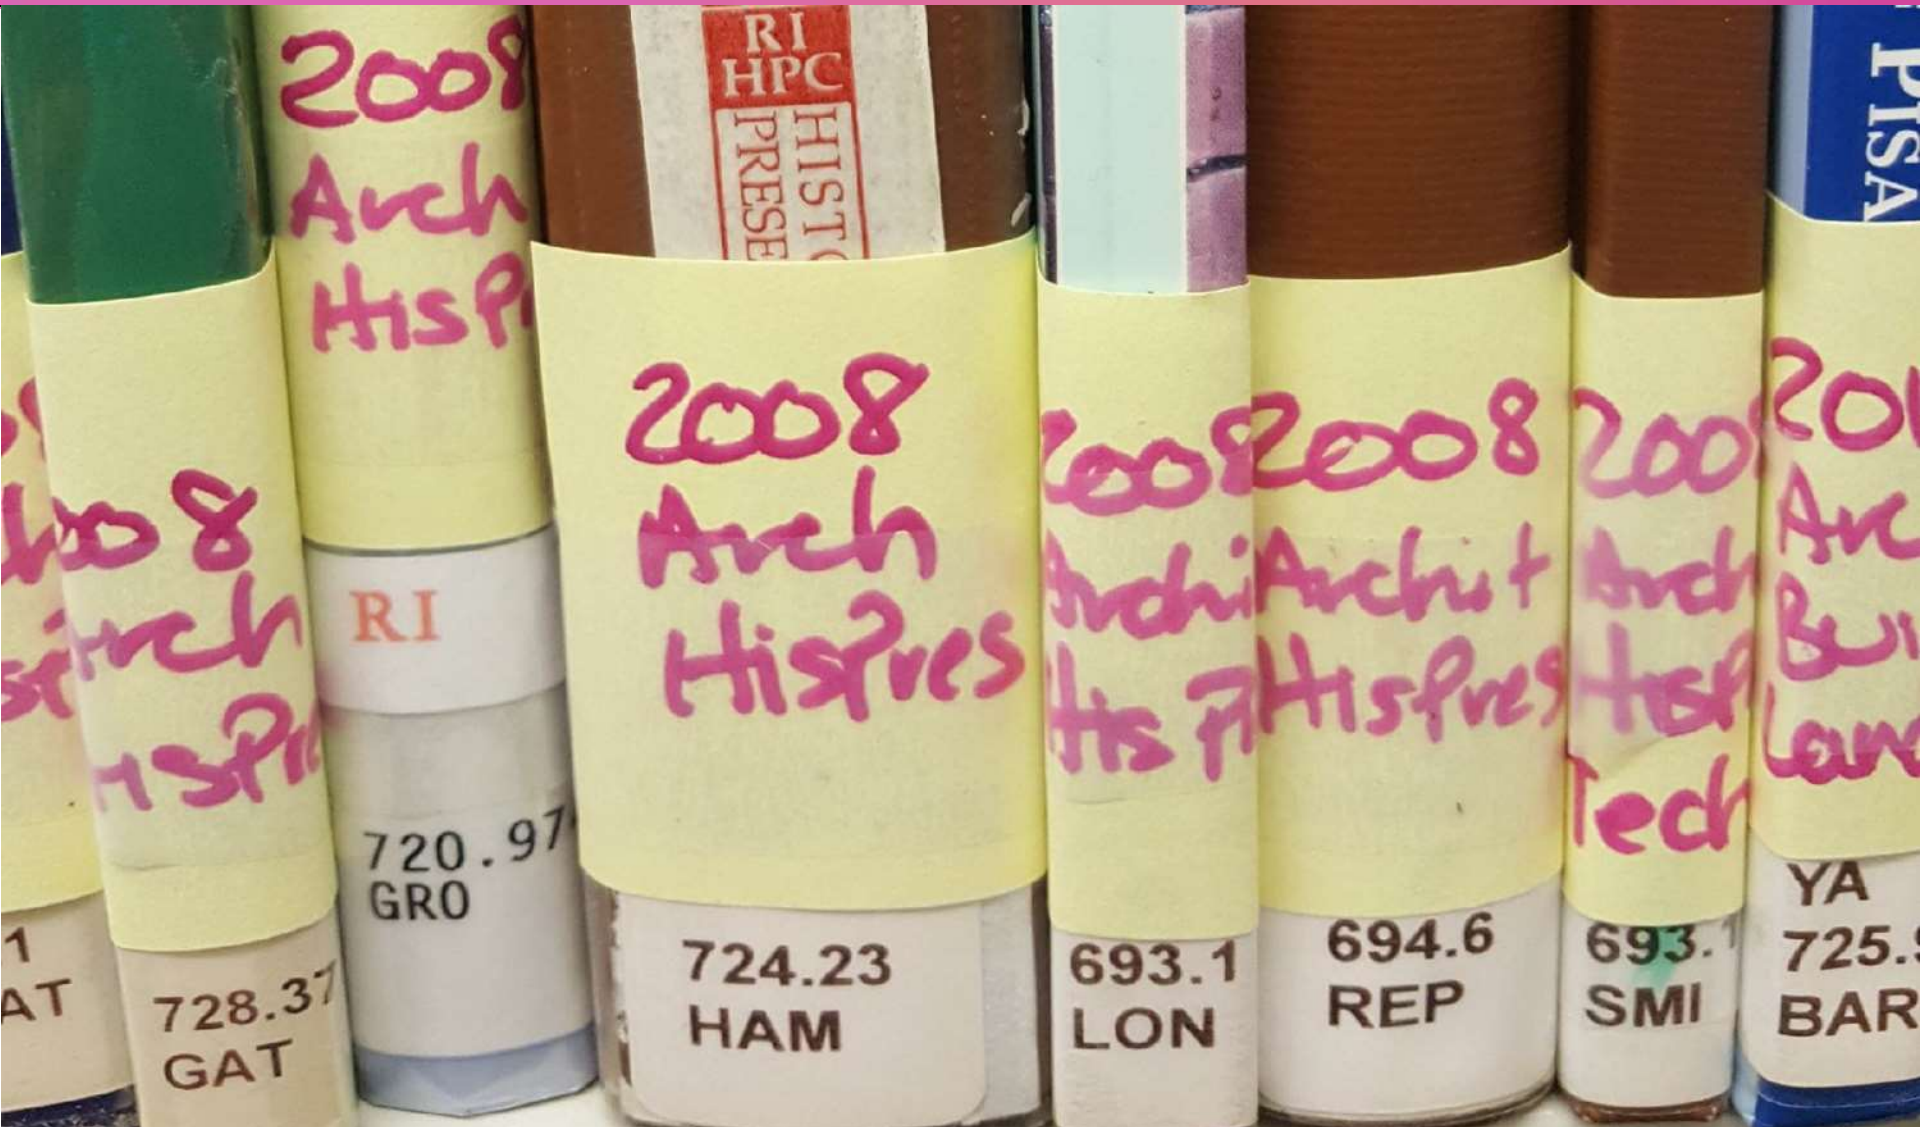 1
AT
008
Arch
HisPre
728.37
GAT
2008
Arch
HisPr
RI
720.97
GRO
RI
HPC
HISTO
PRESE
2008
Arch
HisPres
724.23
HAM
2008
Archi
His Pr
693.1
LON
2008
Archit
HisPres
694.6
REP
2008
Arch
HisP
Tech
693.1
SMI
PISA
201
Arc
Bui
Land
YA
725.9
BAR